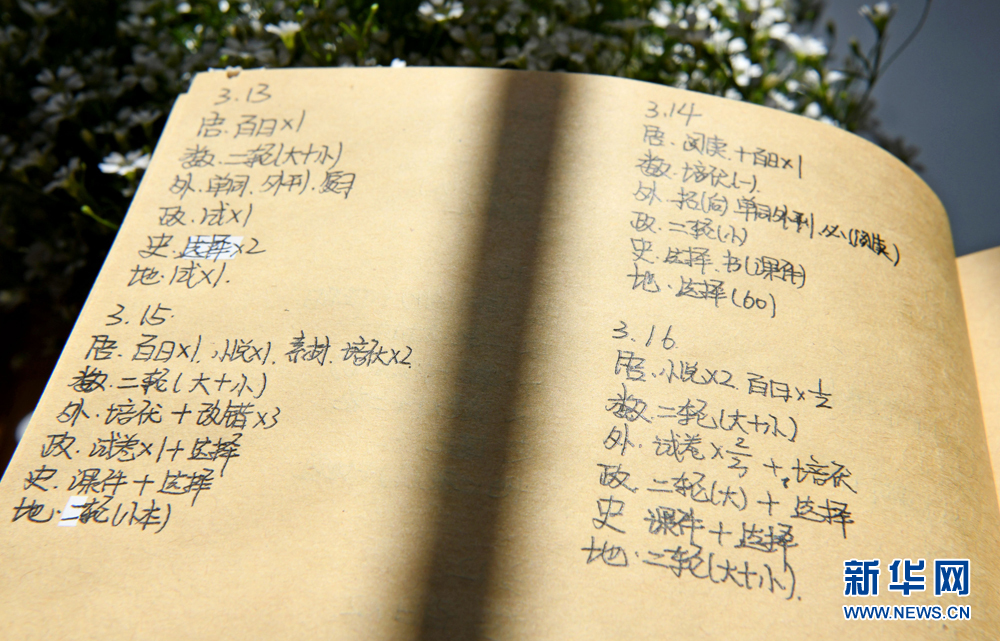 3.13
语.百日×1
数.二轮(大+小)
外.单词、外刊、
政.试×1
史.选择×2
地.试×1.
3.15.
语.百日×1.小说×1.素材.培优×2
数.二轮(大+小)
外.培优+改错×3
政.试卷×1+选择
史.课件+选择
地.二轮(小本)
3.14
语.阅读.+百日×1
数.培优(一).
外. 单词外刊.(阅读)
政.二轮(小)
史.选择.书(课件)
地.选择(60)
3.16.
语.小说×2.百日×1/2
数.二轮(大+小)
外.试卷×2/3+培优
政.二轮(大)+选择
史 课件+选择
地.二轮(大+小).
新华网
WWW.NEWS.CN